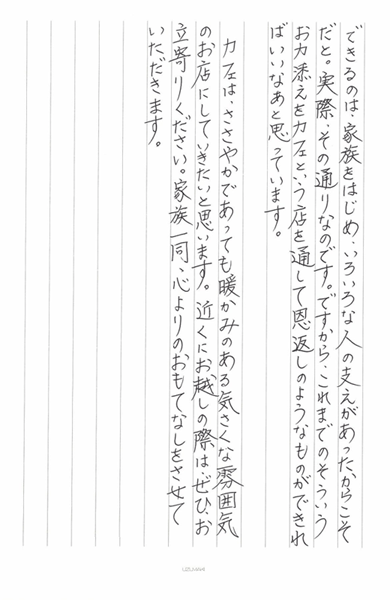 できるのは、家族をはじめ、いろいろな人の支えがあったからこそ
だと。実際、その通りなのです。ですから、これまでのそういう
お力添えをカフェという店を通して恩返しのようなものができれ
ばいいなあと思っています。
カフェは、ささやかであっても暖かみのある気さくな雰囲気
のお店にしていきたいと思います。近くにお越しの際は、ぜひ、お
立寄りください。家族一同、心よりのおもてなしをさせて
いただきます。